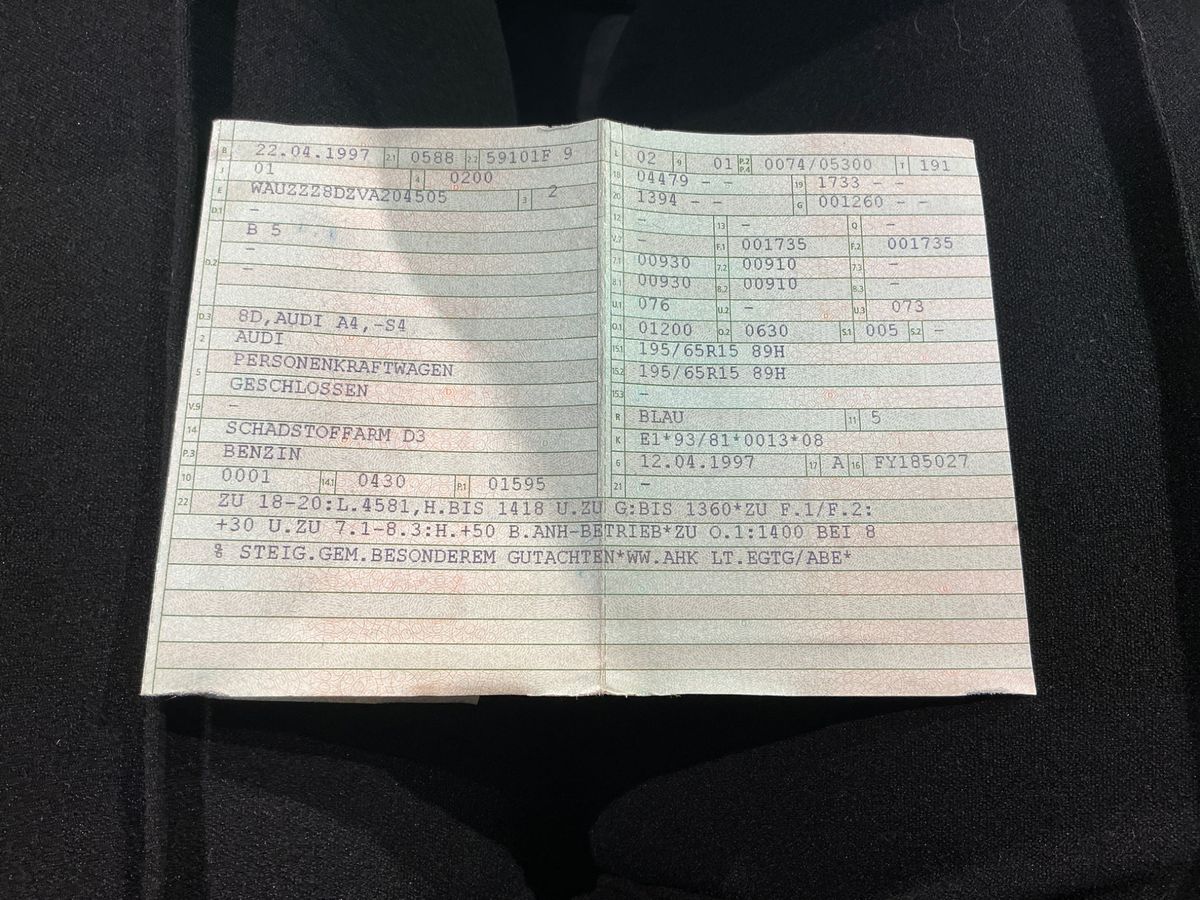 B 22.04.1997 2.1 0588 2.2 59101F 9
J 01 4 0200
E WAUZZZ8DZVA204505 3 2
D.1 -
B 5
D.2 -
-
D.3 8D,AUDI A4,-S4
2 AUDI
5 PERSONENKRAFTWAGEN
GESCHLOSSEN
V.9 -
14 SCHADSTOFFARM D3
P.3 BENZIN
10 0001 14.1 0430 P.1 01595
L 02 9 01 P.2 P.4 0074/05300 T 191
18 04479 - - 19 1733 - -
20 1394 - - G 001260 - -
12 - 13 - Q -
V.7 - F.1 001735 F.2 001735
7.1 00930 7.2 00910 7.3 -
8.1 00930 8.2 00910 8.3 -
U.1 076 U.2 - U.3 073
O.1 01200 O.2 0630 S.1 005 S.2 -
15.1 195/65R15 89H
15.2 195/65R15 89H
15.3 -
R BLAU 11 5
K E1*93/81*0013*08
6 12.04.1997 17 A 16 FY185027
21 -
22 ZU 18-20:L.4581,H.BIS 1418 U.ZU G:BIS 1360*ZU F.1/F.2:
+30 U.ZU 7.1-8.3:H.+50 B.ANH-BETRIEB*ZU O.1:1400 BEI 8
% STEIG.GEM.BESONDEREM GUTACHTEN*WW.AHK LT.EGTG/ABE*